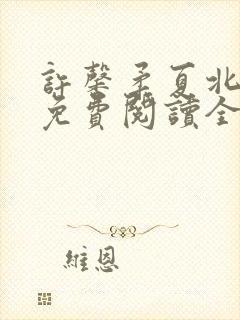 許馨矛夏北
免費閱讀全
維恩